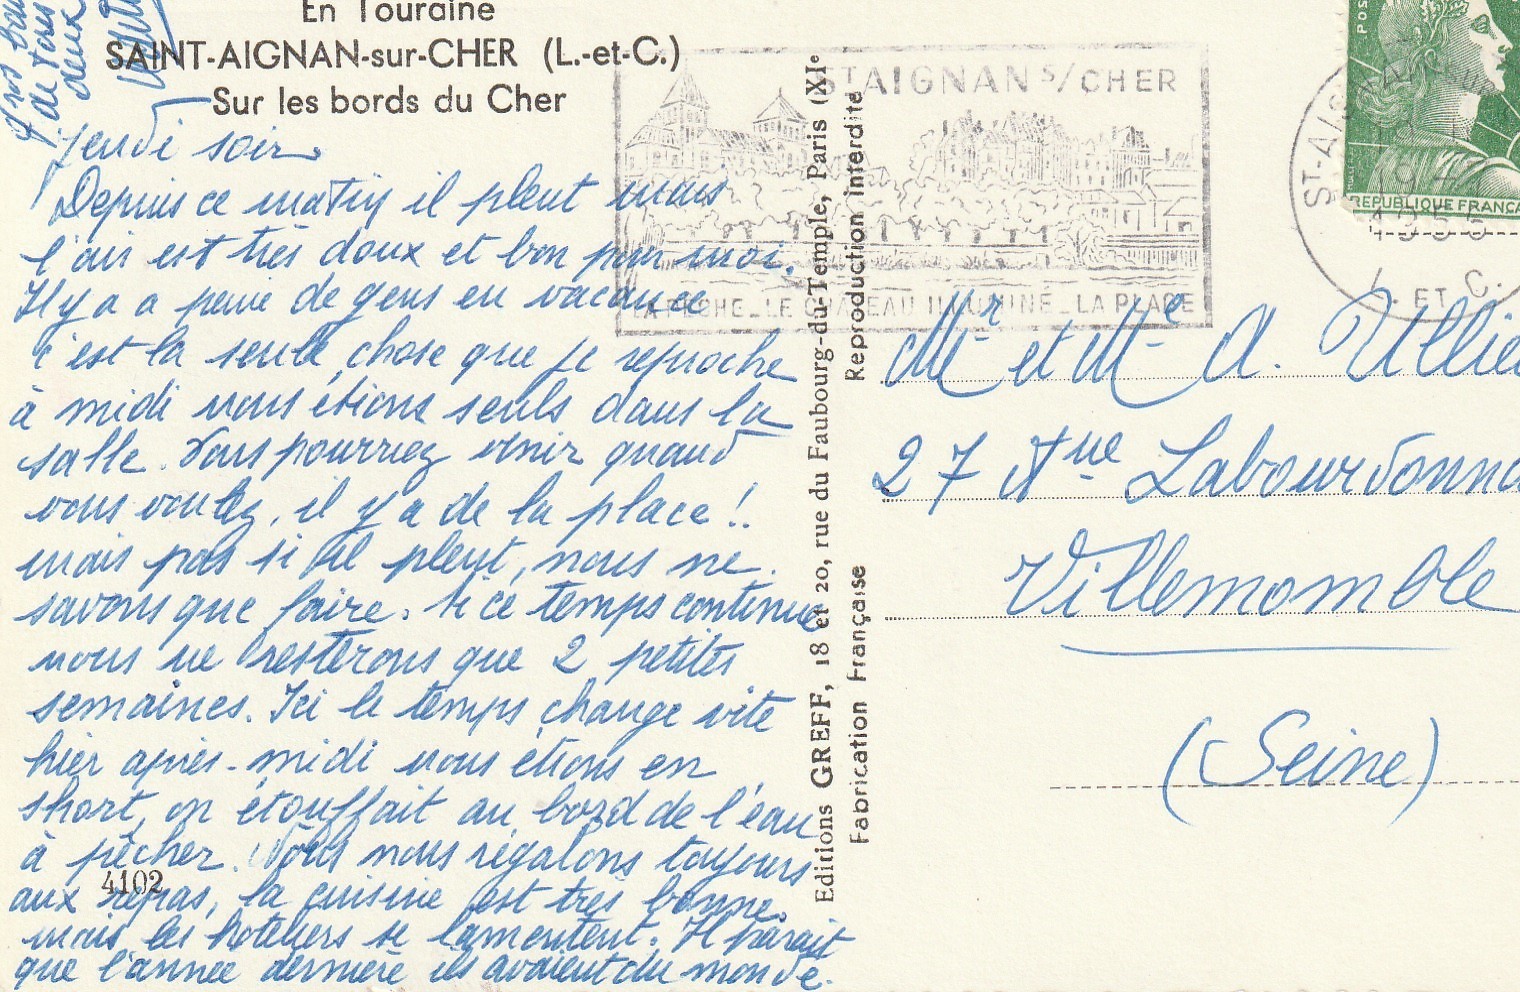 En Touraine
SAINT-AIGNAN-sur-CHER (L.-et-C.)
Sur les bords du Cher
jeudi soir.
Depuis ce matin il pleut mais
l'air est très doux et bon pour moi.
Il y a a peine de gens en vacance
c'est la seule chose que je reproche
à midi nous étions seuls dans la
salle. Vous pourriez venir quand
vous voulez, il y a de la place !!
mais pas si il pleut, nous ne
savons que faire. Si ce temps continue
nous ne resterons que 2 petites
semaines. Ici le temps change vite
hier après-midi nous étions en
short, on étouffait au bord de l'eau
à pêcher. Nous nous régalons toujours
aux repas, la cuisine est très bonne.
mais les hoteliers se lamentent. Il parait
que l'année dernière ils avaient du monde.
de tous
deux
4102
Editions GREFF, 18 et 20, rue du Faubourg-du-Temple, Paris (XIe
Reproduction interdite
Fabrication Française
ST AIGNAN S/CHER
LE CHATEAU ILLUMINÉ _ LA PLAGE
ST-AIGNAN
L. ET C.
REPUBLIQUE FRANÇA
Mr et Me A. Ullie
27 Ave Labourdonna
Villemomble
(Seine)